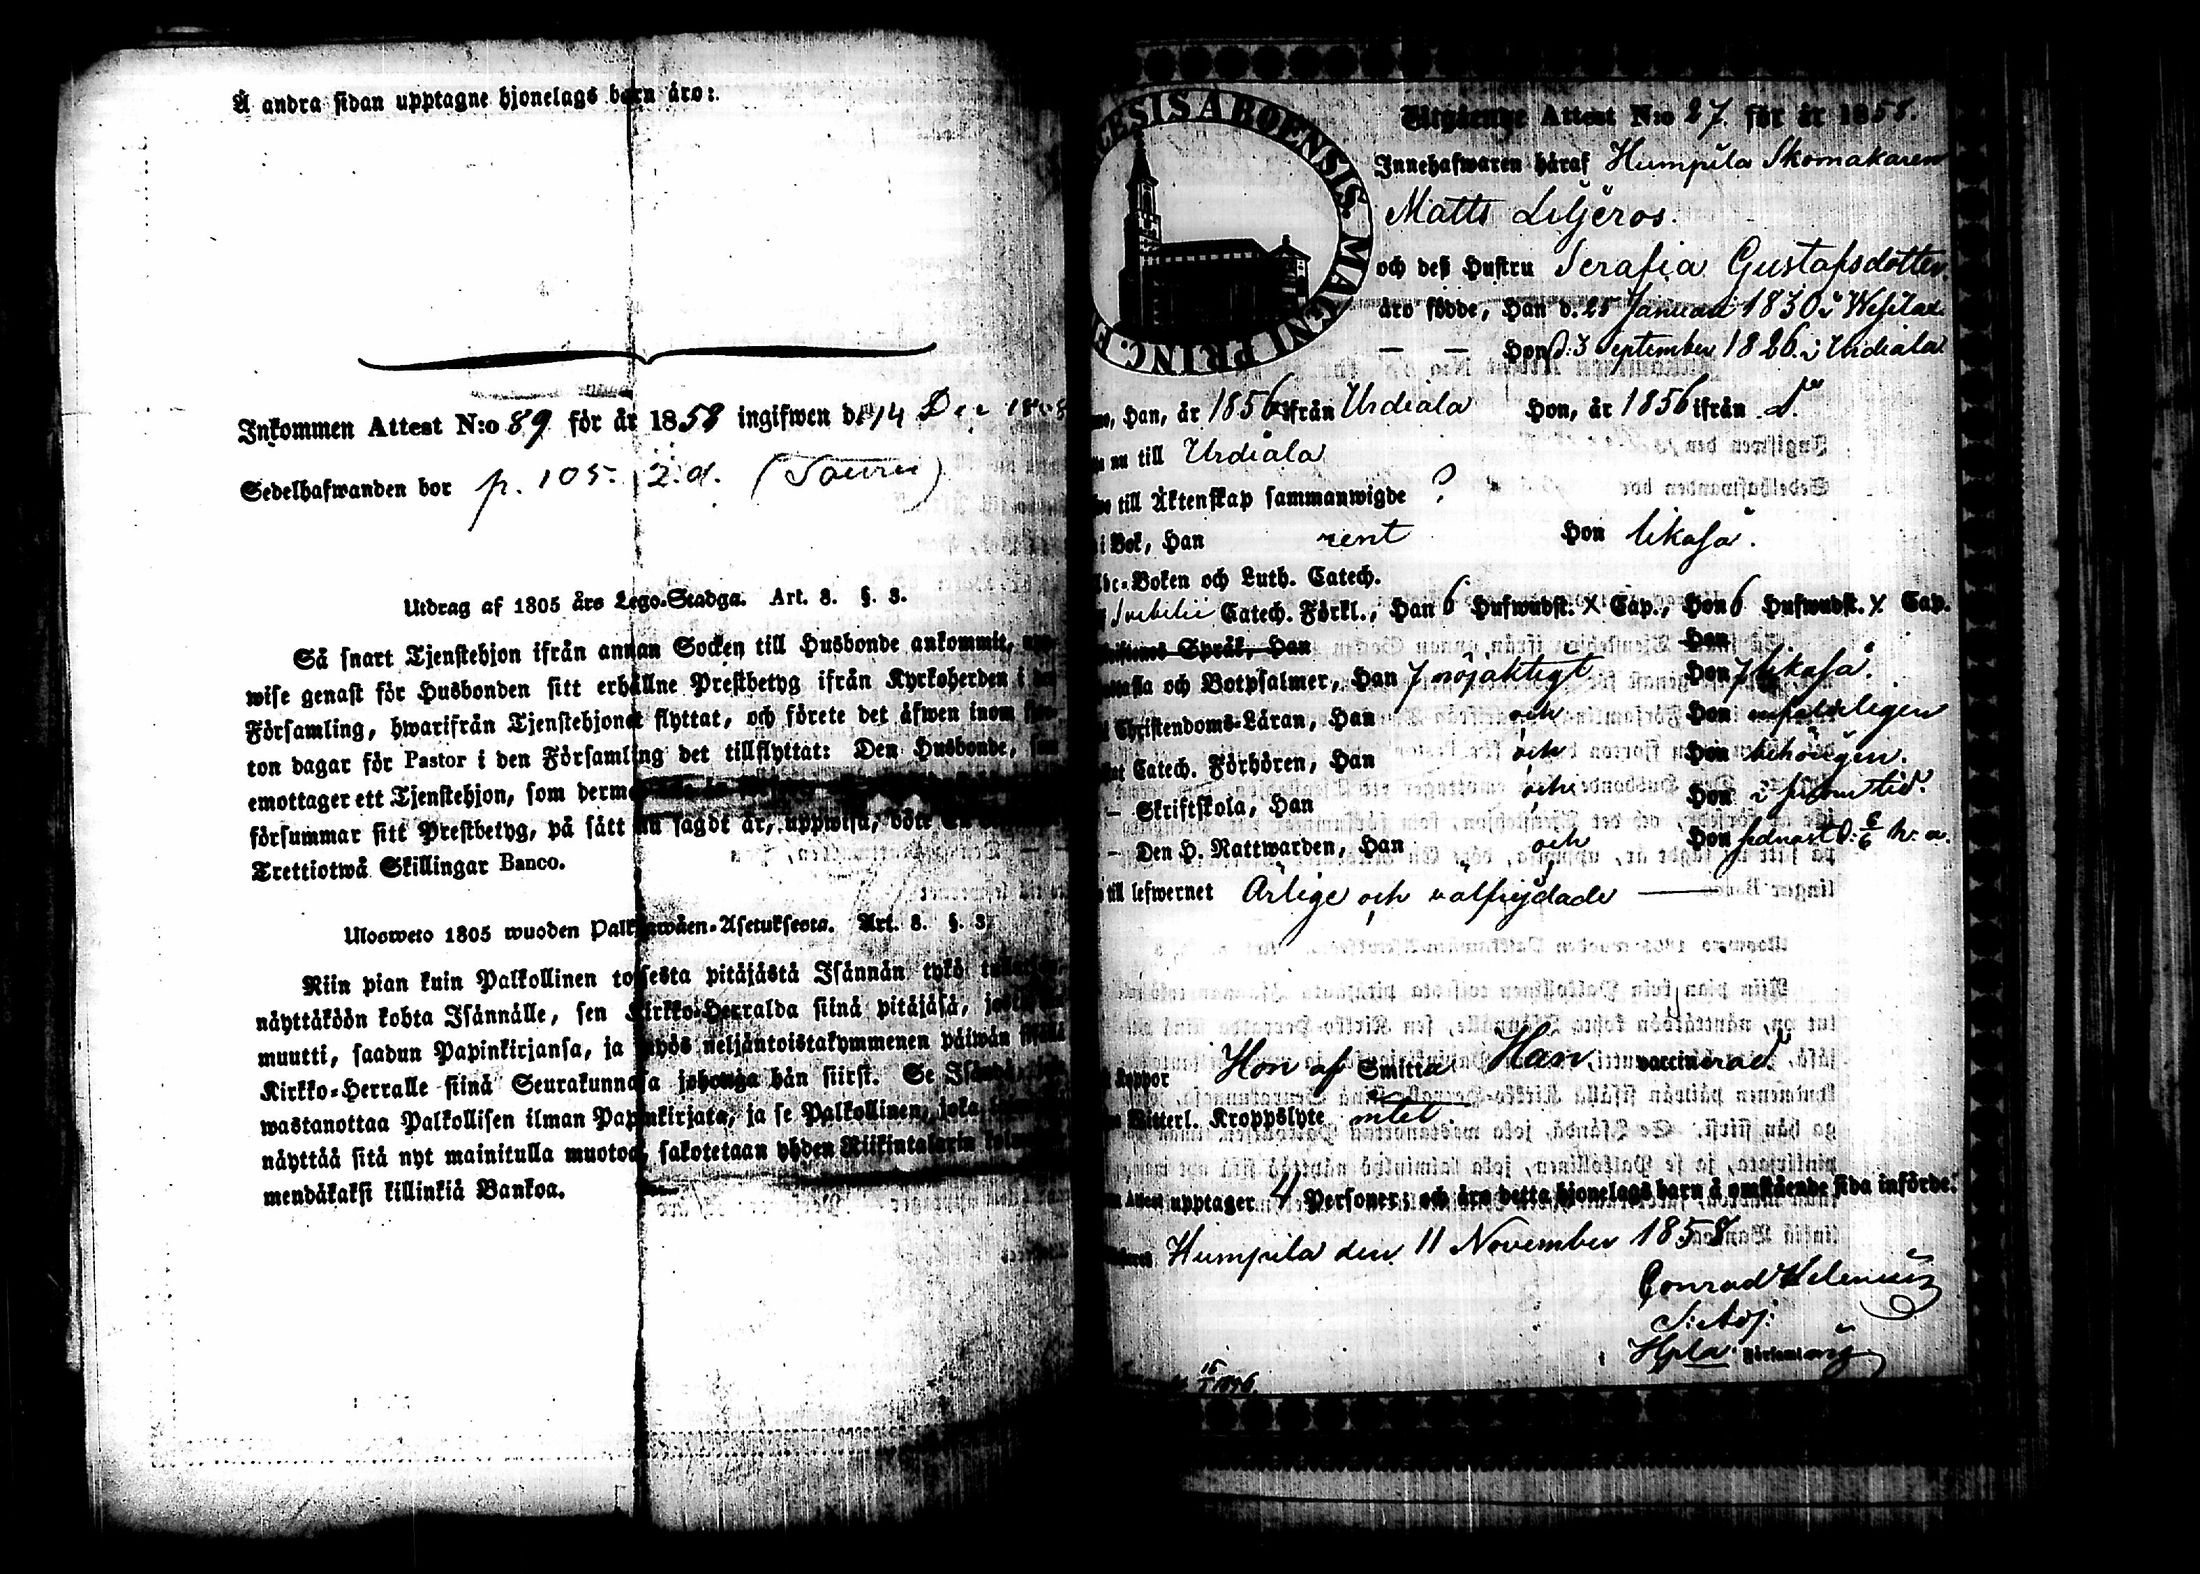 Å andra sidan upptagne hjonelags barn äro:
Inkommen Attest N:o 89 för år 1858 ingifwen d. 14 Dec 1858
Sedelhafwanden bor p. 105. 2.d. (Sauru)
Utdrag af 1805 års Lego-Stadga. Art. 8. §. 3.
Så snart Tjenstehjon ifrån annan Socken till Husbonde ankommit,
wise genast för Husbonden sitt erhållne Prestbetyg ifrån Kyrkoherden i
Församling, hwarifrån Tjenstehjonet flyttat, och förete det äfwen inom
ton dagar för Pastor i den Församling det tillflyttat: Den Husbonde,
emottager ett Tjenstehjon, som
försummar sitt Prestbetyg, på sätt nu sagdt är, uppwisa, böte
Trettiotwå Skillingar Banco.
Ulosweto 1805 wuoden Palkkawäen-Asetuksesta. Art. 8. §. 3.
Niin pian kuin Palkollinen toisesta pitäjästä Isännän tykö
näyttäköön kohta Isännälle, sen Kirkko-Herralda siinä pitäjäsä,
muutti, saadun Papinkirjansa, ja myös neljäntoistakymmenen päiwän sisällä
Kirkko-Herralle siinä Seurakunnasa johonga hän siirst. Se Isändä,
wastanottaa Palkollisen ilman Papinkirjata, ja se Palkollinen, joka
näyttää sitä nyt mainitulla muotoa, sakotetaan yhden Riikintalarin
mendäkaksi killinkiä Bankoa.
ECESIS ABOENSIS. MAGNI PRINC.
Utgående Attest N:o 27 för år 1858.
Innehafwaren häraf Humpila Skomakaren
Matts Liljeros.
och deß Hustru Serafia Gustafsdotter.
äro födde, Han d. 25 Januari 1830 i Wesilax.
— — Hon d. 3 September 1826. i Urdiala.
Han, år 1856 ifrån Urdiala Hon, år 1856 ifrån d:o
nu till Urdiala
till Äktenskap sammanwigde ?
i Bok, Han rent Hon likaså.
Abc-Boken och Luth. Catech.
Svebelii Catech. Förkl., Han 6 Hufwudst. X Cap., Hon 6 Hufwudst. X Cap.
Språk, Han Hon
och Botpsalmer, Han 7 nöjaktigt Hon 7 likaså.
Christendoms-Läran, Han och Hon
Catech. Förhören, Han och Hon behörigen.
— Skriftskola, Han och Hon i sinom tid.
— Den H. Nattwarden, Han och Hon sednast d: 6/6 h. a.
till lefwernet Ärlige och välfrejdade —
Koppor Hon af Smitta Han vaccinerad.
Witterl. Kroppslyte intet.
Attest upptager 4 Personer; och äro detta hjonelags barn å omstående sida införde.
Humpila den 11 November 1858
Conrad Helenius
S: Adj:
i Hpla Församling